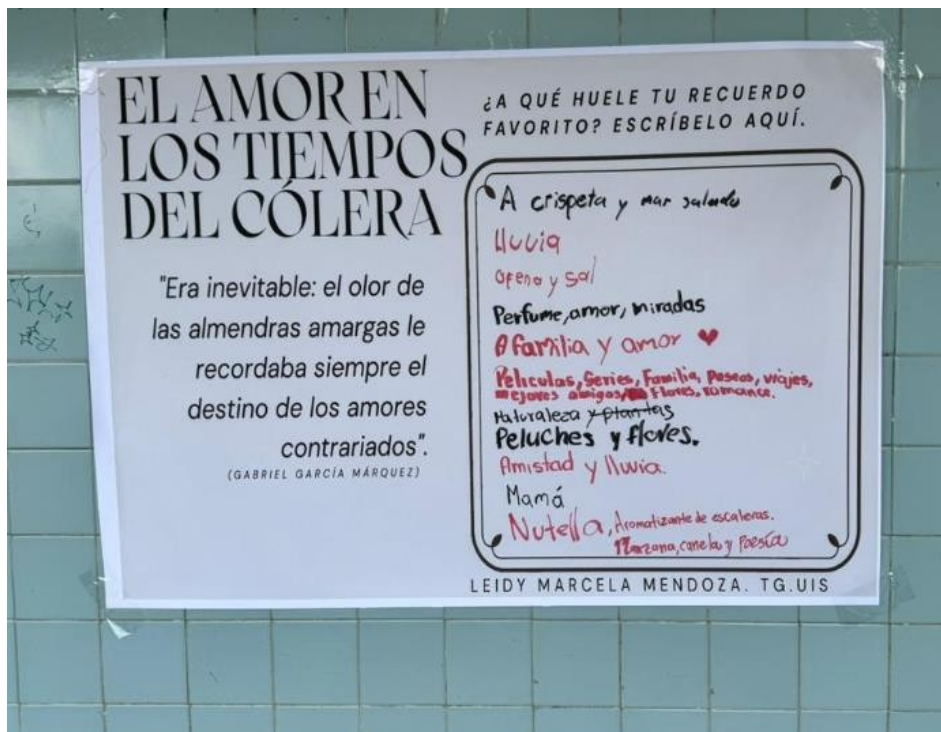 EL AMOR EN
LOS TIEMPOS
DEL CÓLERA
"Era inevitable: el olor de
las almendras amargas le
recordaba siempre el
destino de los amores
contrariados".
(GABRIEL GARCÍA MÁRQUEZ)
¿A QUÉ HUELE TU RECUERDO
FAVORITO? ESCRÍBELO AQUÍ.
A crispeta y mar salado
Lluvia
arena y sal
Perfume, amor, miradas
A familia y amor ♥
Peliculas, Series, Familia, Paseos, viajes,
mejores amigos, Flores, romance.
Naturaleza y plantas
Peluches y flores.
Amistad y lluvia.
Mamá
Nutella, Aromatizante de escaleras.
Manzana, canela y Poesía
LEIDY MARCELA MENDOZA. TG.UIS